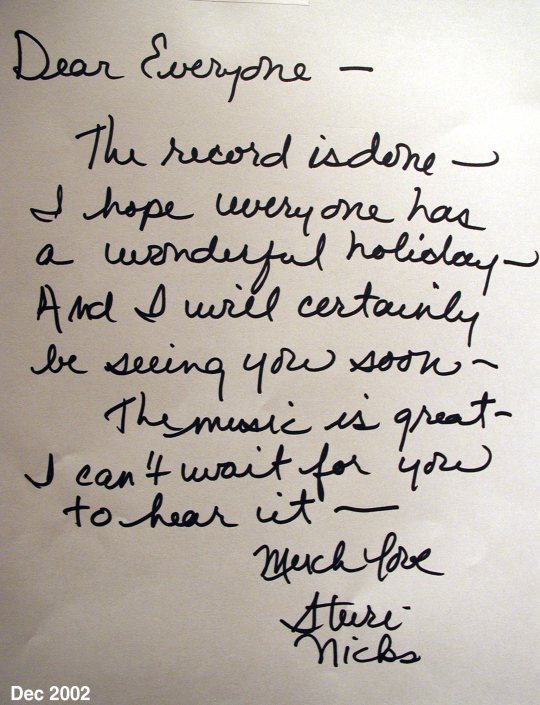 Dear Everyone —
The record is done —
I hope everyone has
a wonderful holiday —
And I will certainly
be seeing you soon —
The music is great —
I can't wait for you
to hear it —
Much love
Stevie
Nicks
Dec 2002